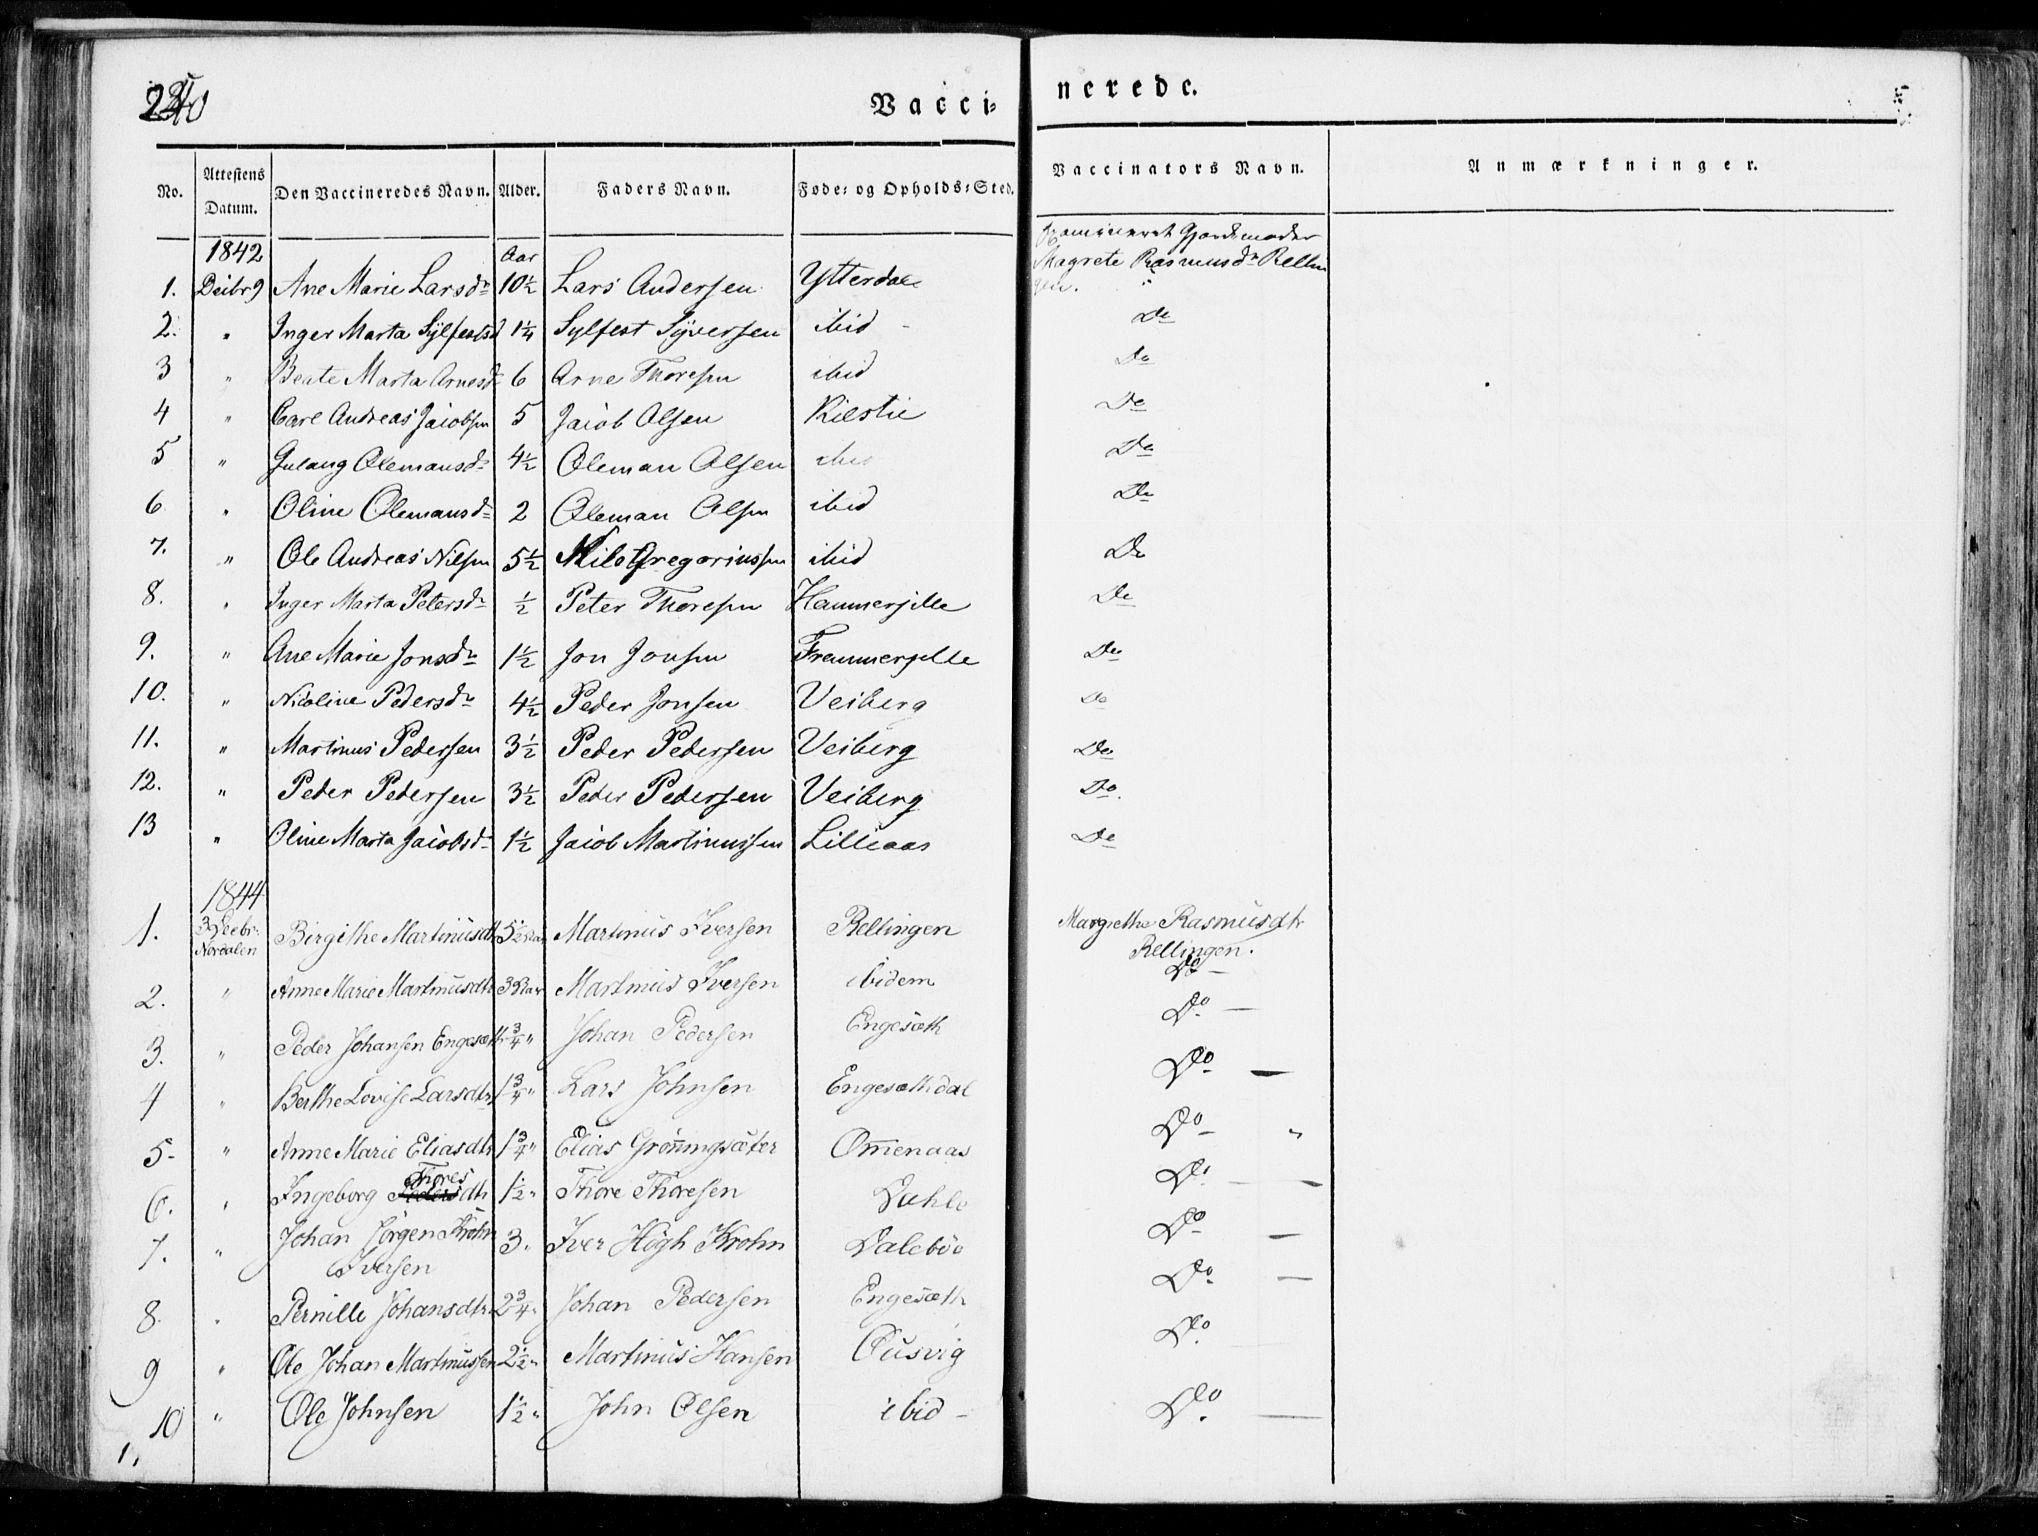 240
Vacci-nerede.
No. | Attestens Datum. | Den Vaccineredes Navn. | Alder. | Faders Navn. | Føde- og Opholds-Sted. | Vaccinators Navn. | Anmærkninger.
1842 | Aar | Examineret Gjordemoder
1. | Decbr 9 | Ane Marie Larsdr | 10½ | Lars Andersen | Ytterdal | Magrete Rasmusdr Rellingen.
2. | " | Inger Marta Sylfestsd | 1¼ | Sylfest Syversen | ibid - | Do
3 | " | Beate Marta Arnesd | 6 | Arne Thoresen | ibid | Do
4 | " | Carl Andreas Jacobsen | 5 | Jacob Olsen | Kilstie | Do
5 | " | Gulaug Olemansdr | 4½ | Oleman Olsen | ibid | Do
6 | " | Oline Olemansdr | 2 | Oleman Olsen | ibid | Do
7. | " | Ole Andreas Nilsen | 5½ | Nils Gregoriussen | ibid | Do
8. | " | Inger Marta Petersdr | ½ | Peter Thoresen | Hammerjille | Do
9. | " | Ane Marie Jonsdr | 1½ | Jon Jonsen | Fremmerjelle | Do
10. | " | Nicoline Pedersdr | 4½ | Peder Jonsen | Veiberg | Do
11. | " | Martinus Pedersen | 3½ | Peder Pedersen | Veiberg | Do
12. | " | Peder Pedersen | 3½ | Peder Pedersen | Veiberg | Do.
13 | " | Oline Marta Jacobsdr | 1½ | Jacob Martinussen | Lilleaas | Do
1844
1. | 3 Decbr. Nordalen | Birgithe Martinusdtr | 5½ Aar | Martinus Iversen | Rellingen | Margrethe Rasmusdtr Rellingen.
2. | " | Anne Marie Martinusdtr | 3 Aar | Martinus Iversen | ibidem | Do -
3. | " | Peder Johansen Engesæth | ¾ " | Johan Pedersen | Engesæth | Do -
4 | " | Berthe Lovise Larsdtr | 1¾ " | Lars Johnsen | Engesæthdal | Do -
5- | " | Anne Marie Eliasdtr | 1¾ " | Elias Grønningsæter | Omenaas | Do - "
6. | " | Ingeborg Thoresdtr | 1½ " | Thore Thoresen | Dahle | Do - -
7. | " | Johan Jørgen Krohn Iversen | 3 " | Iver Høgh Krohn | Dalebøe | Do -
8. | " | Pernille Johansdtr | 2¾ " | Johan Pedersen | Engesæth | Do -
9 | " | Ole Johan Martinussen | 2½ " | Martinus Hansen | Ousvig | Do
10 | " | Ole Johnsen | 1½ " | John Olsen | ibid - | Do -
1.